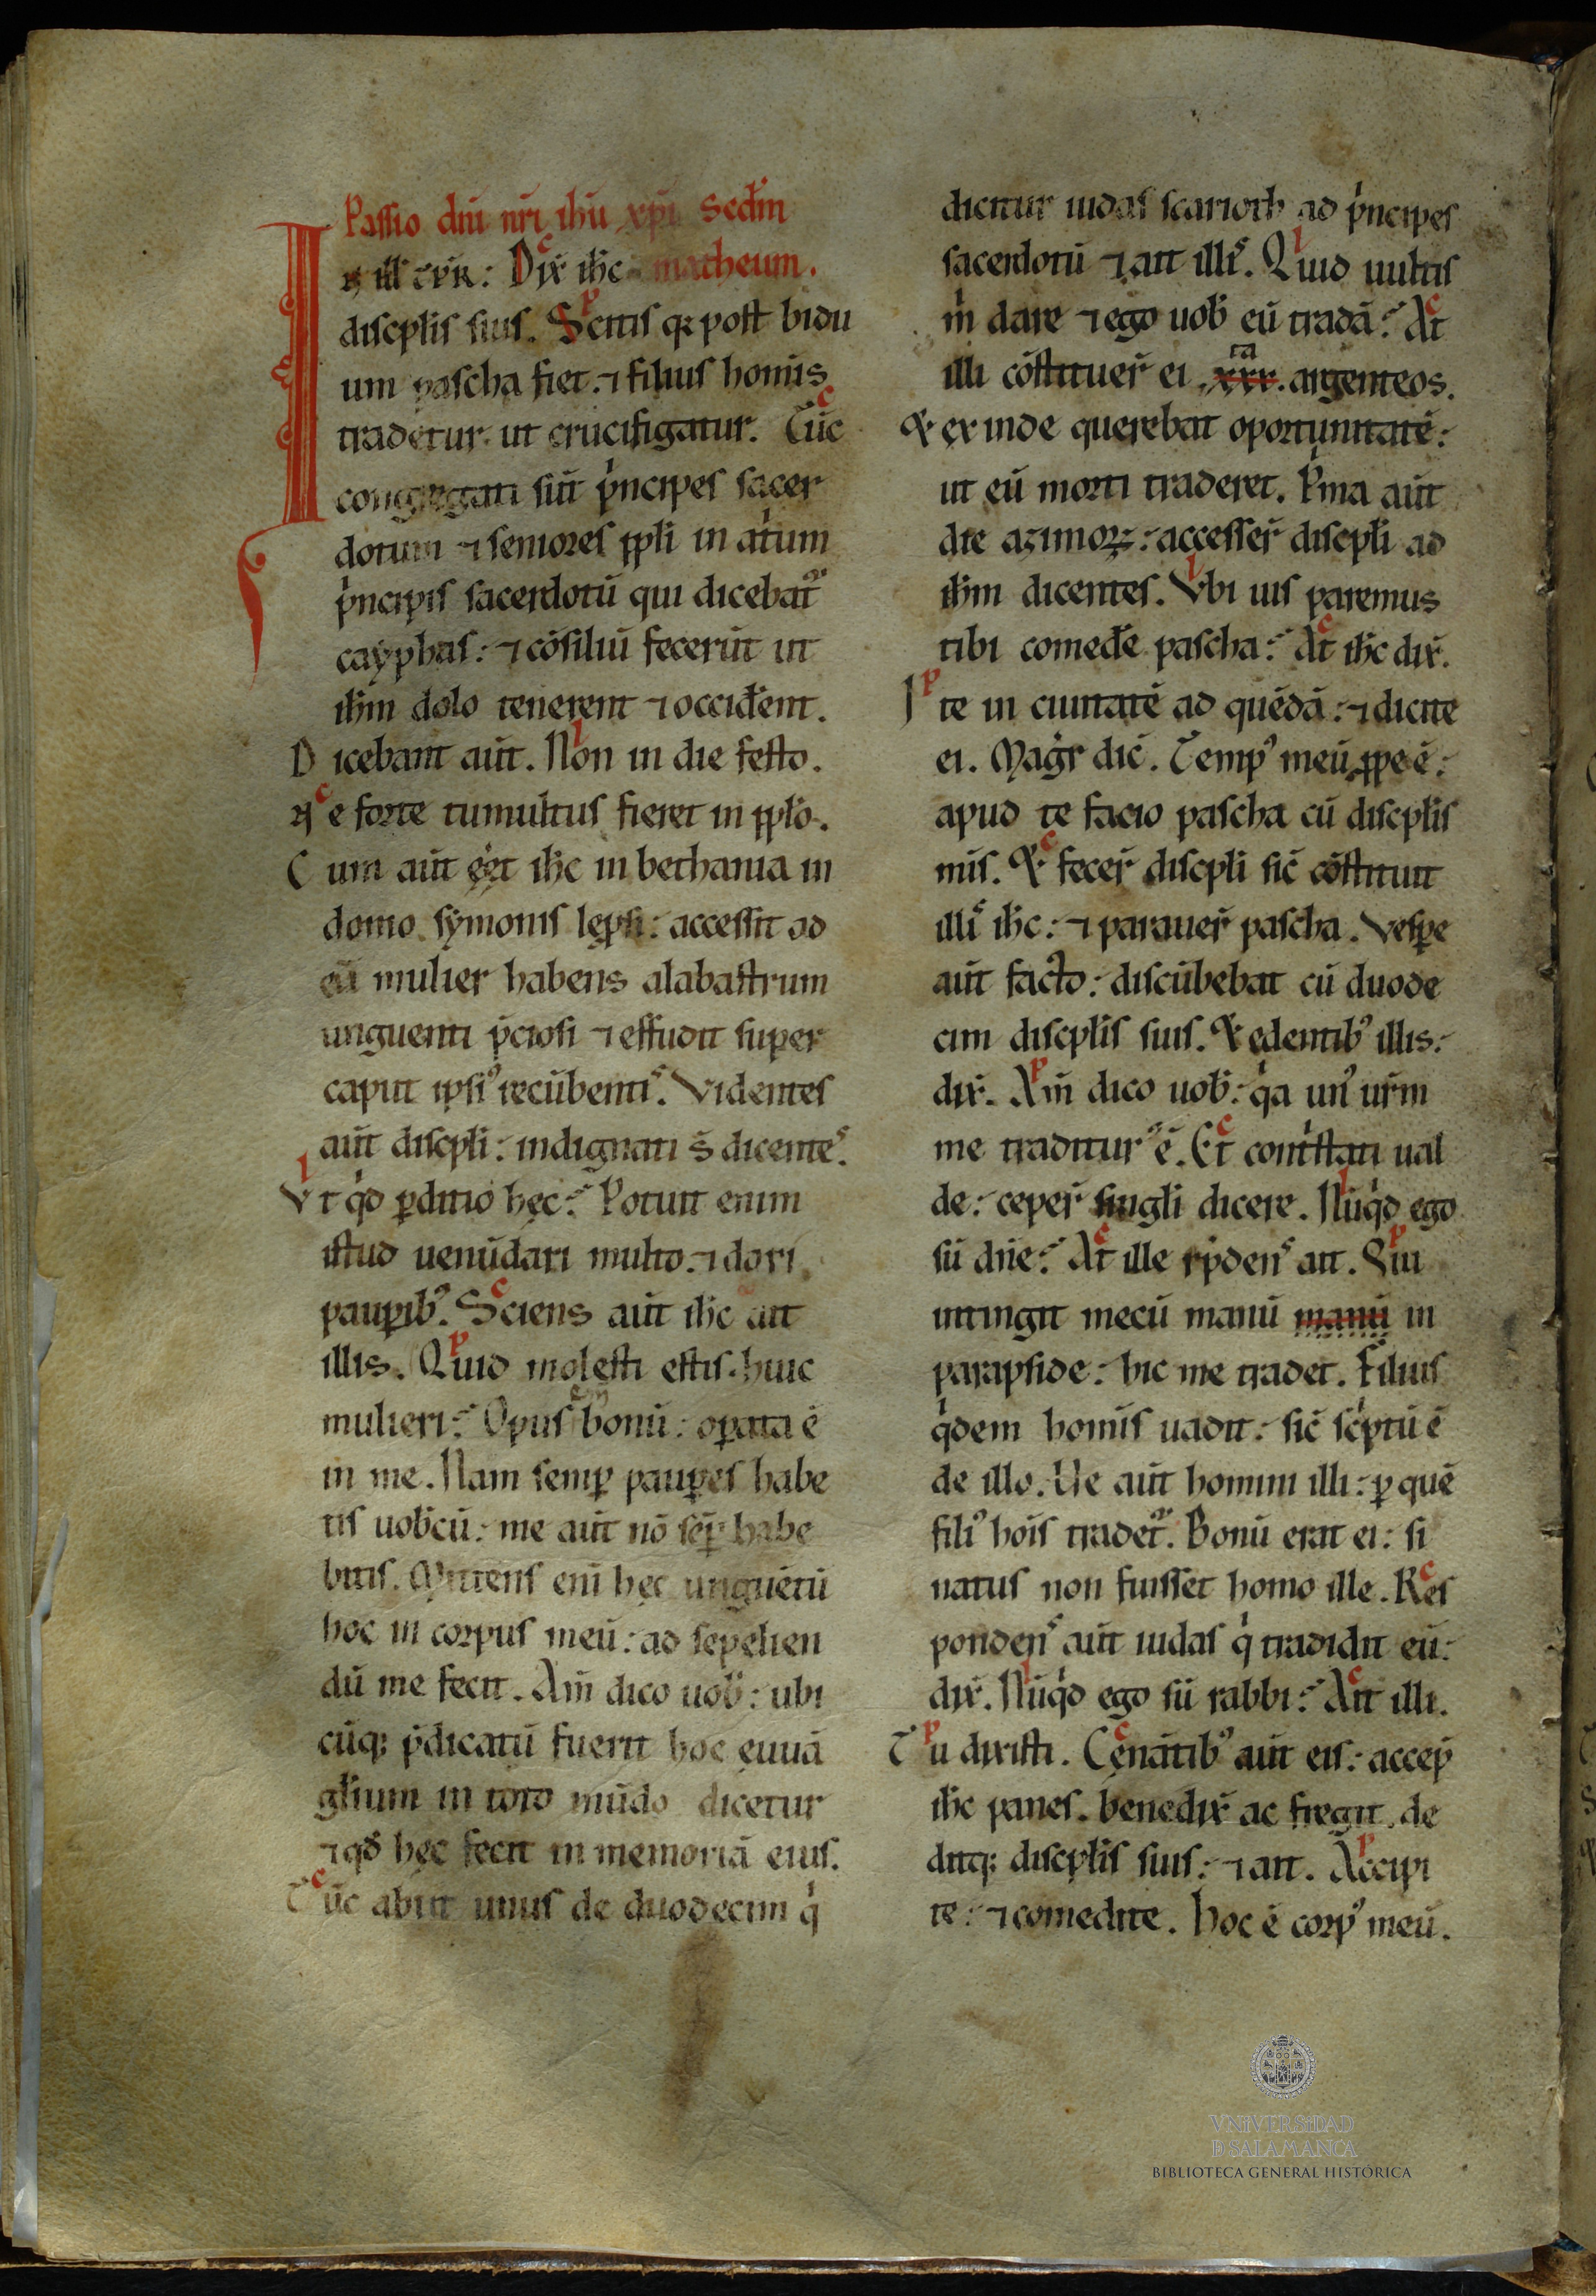 Passio dñi nr̄i ih̄u xp̄i Secd̄m
IN ill̄ tp̄r: Dix̄ ih̄c matheum.
discpl̄is suis. Scitis q; post bidu
um pascha fiet. ⁊ filius hom̄is
tradetur ut crucifigatur. Tūc
congregati sūt pͥncipes sacer
dotum ⁊ seniores ppl̄i in atͥum
pͥncipis sacerdotū qui dicebat᷑
cayphas: ⁊ cōsiliū fecerūt ut
ih̄m dolo tenerent ⁊ occider̄ent.
Dicebant aūt. Non in die festo.
Ne forte tumultus fieret in ppl̄o.
Cum aūt eēt ih̄c in bethania in
domo symonis lepsi: accessit ad
eū mulier habens alabastrum
unguenti p̄ciosi ⁊ effudit super
caput ipsiꝰ recūbentis. Videntes
aūt discpl̄i: indignati s̄ dicentes.
Vt qͥd ꝑditio hec: Potuit enim
istud uenūdari multo. ⁊ dari
pauꝑibꝰ. Sciens aūt ih̄c ait
illis. Quid molesti estis. huic
mulieri: Opus eni bonū: oꝑata ē
in me. Nam semꝑ pauꝑes habe
tis uob̄cū: me aūt nō seꝑ habe
bitis. Mittens eni hec unguētū
hoc in corpus meū: ad sepelien
dū me fecit. Am̄ dico uob̄: ubi
cūq; p̄dicatū fuerit hoc euuā
gl̄ium in toto mūdo dicetur
⁊ qd̄ hec fecit in memoriā eius.
Tūc abiit unus de duodecim qͥ
dicitur iudas scarioth ad pͥncipes
sacerdotū ⁊ ait illis. Quid uultis
m̄ dare ⁊ ego uob̄ eū tradā: At
illi cōstituer̄ ei .xxx.ta argenteos.
Et exinde querebat oportunitatē:
ut eū morti traderet. Pͥma aūt
die azimoꝝ: accesser̄ discpl̄i ad
ih̄m dicentes. Vbi uis paremus
tibi comeder̄e pascha: At ih̄c dix̄.
Ite in ciuitatē ad quēdā: ⁊ dicite
ei. Magr̄ dic̄. Tempꝰ meū ꝓpe ē:
apud te facio pascha cū discpl̄is
mīs. Et fecer̄ discpl̄i sic̄ cōstituit
illis ih̄c: ⁊ parauer̄ pascha. Vesꝑe
aūt facto: discūbebat cū duode
cim discpl̄is suis. Et edentibꝰ illis:
dix̄. Am̄ dico uob̄: qͥa unꝰ ur̄m
me traditurꝰ ē. Et contͥstati ual
de: ceper̄ singli dicere. Nūqͥd ego
sū dn̄e: At ille rp̄dens ait. Qui
intingit mecū manū manū in
parapside: hic me tradet. Filius
qͥdem hom̄is uadit: sic̄ scͥptū ē
de illo. Ve aūt homini illi: ꝑ quē
filiꝰ hoīs tradet᷑. Bonū erat ei: si
natus non fuisset homo ille. Res
pondens aūt iudas qͥ tradidit eū:
dix̄. Nūqͥd ego sū rabbi: Ait illi.
Tu dixisti. Cenātibꝰ aūt eis: accep̄
ih̄c panes. benedix̄ ac fregit. de
ditq; discpl̄is suis: ⁊ ait. Accipi
te: ⁊ comedite. hoc ē corpꝰ meū.
VNIVERSIDAD
D SALAMANCA
BIBLIOTECA GENERAL HISTÓRICA